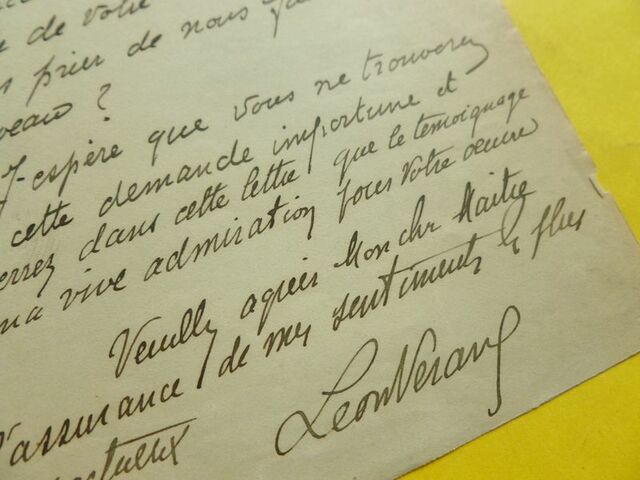 de votre
prier de nous
J'espère que vous ne trouverez
cette demande importune et
verrez dans cette lettre que le témoignage
ma vive admiration pour votre oeuvre
Veuillez agréer Mon cher Maître
l'assurance de mes sentiments les plus
Léon Vérane